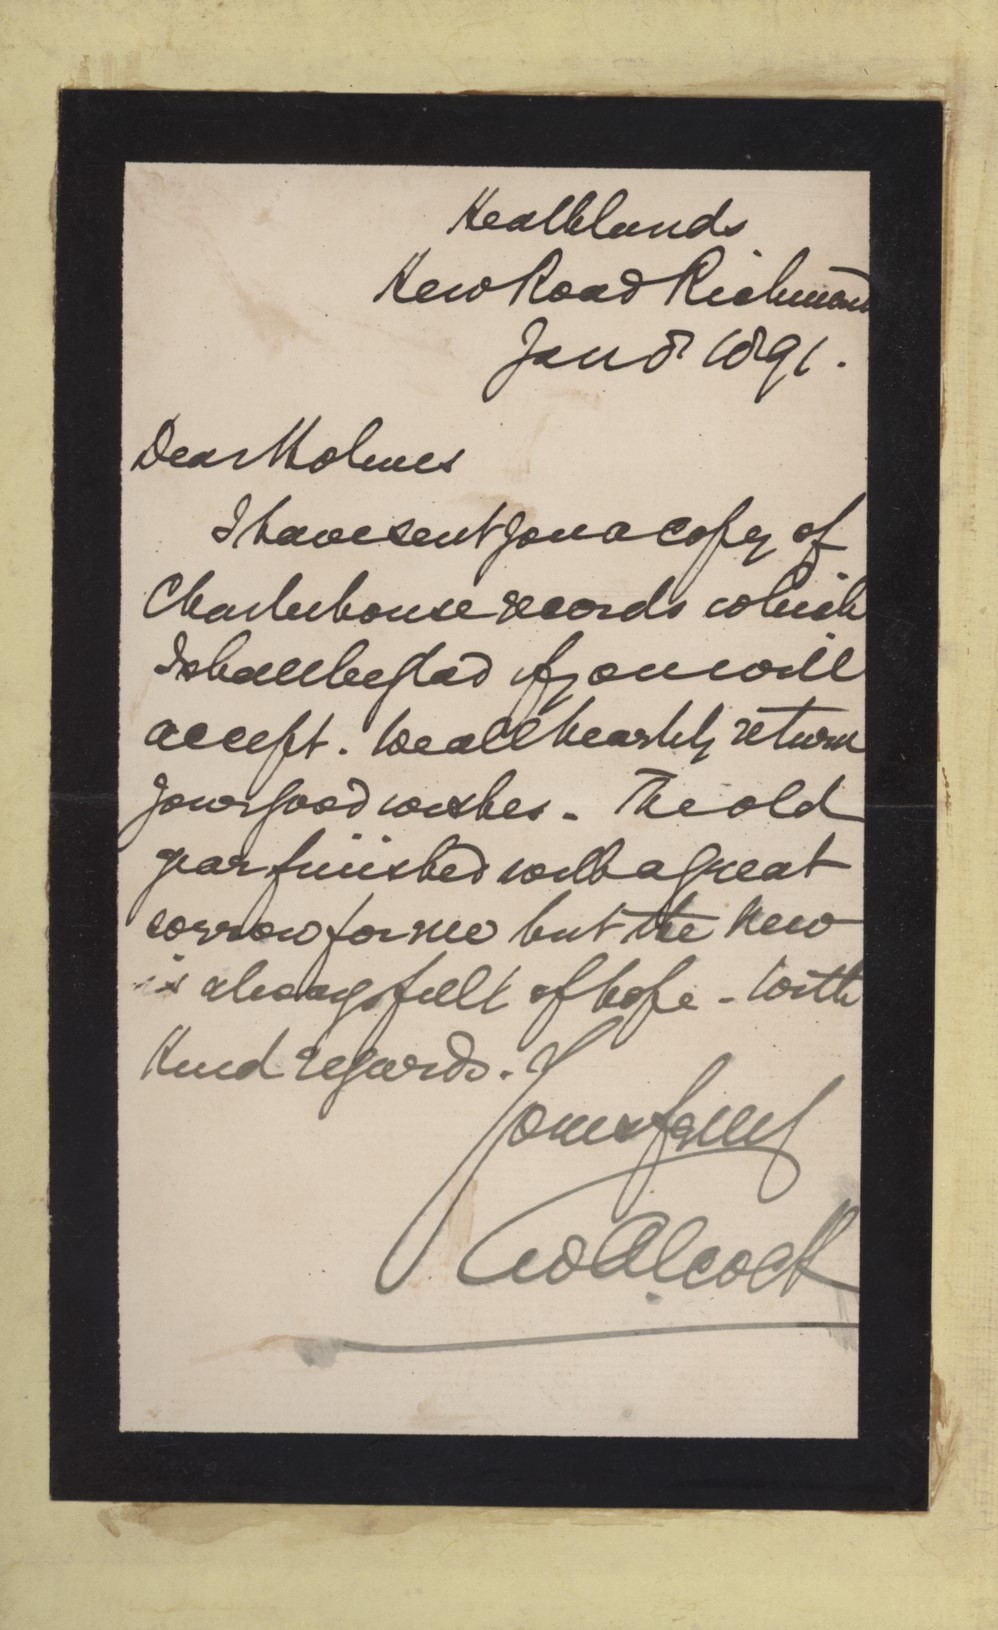 Heathlands
Kew Road Richmond
Jan 8 1891.
Dear Holmes
I have sent you a copy of
Charterhouse records which
I shall be glad if you will
accept. We all heartily return
your good wishes - The old
year finished with a great
sorrow for me but the New
is always full of hope - With
Kind regards.
Yours
Alcock